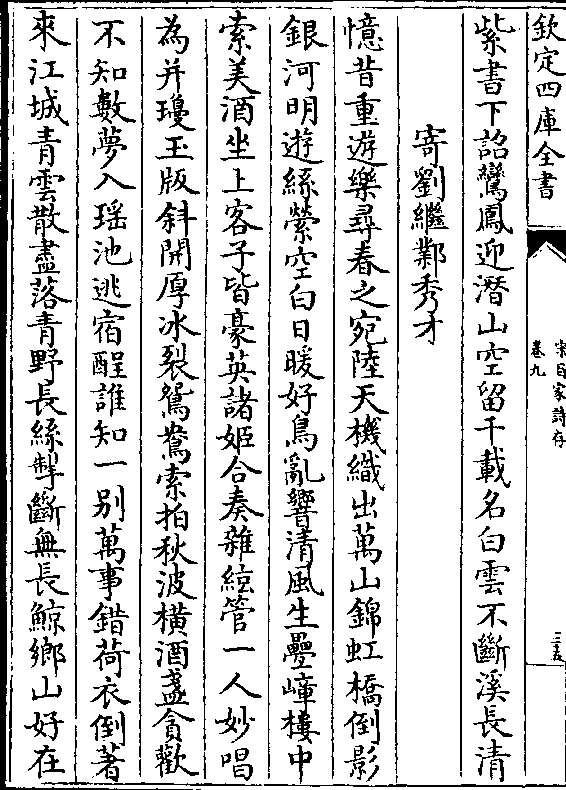 欽定四庫全書
宋百家詩存
卷九
三五
紫書下詔鸞鳳迎潛山空留千載名白雲不斷溪長清
寄劉繼鄴秀才
憶昔重遊樂尋春之宛陸天機織出萬山錦虹橋倒影
銀河明遊絲縈空白日暖好鳥亂響清風生疊嶂樓中
索美酒坐上客子皆豪英諸姬合奏雜絃管一人妙唱
為并瓊玉版斜開厚冰裂鴛鴦索拍秋波橫酒盞貪歡
不知數夢入瑶池逃宿酲誰知一别萬事錯荷衣倒著
來江城青雲散盡落青野長絲掣斷無長鯨鄉山好在